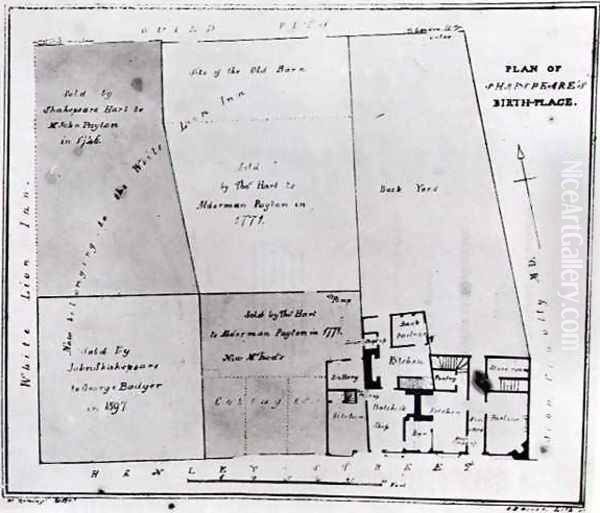 GUILD PITS
PLAN OF
SHAKSPEARE'S
BIRTH-PLACE.
Sold by
Shakespeare Hart to
Mr John Payton
in 1746.
Site of the Old Barn
Lion Inn
Now belonging to the White
Sold
by Thos Hart to
Alderman Payton in
1771.
Back Yard
White Lion Inn.
Sold By
John Shakespeare
to George Badger
in 1597
Pump
Sold by Thos Hart
to Alderman Payton in 1771.
Now Mr
Cottages
Back
Kitchen
Pantry
Kitchen
Butcher's
Shop
Kitchen
Bar
Parlour
Store room
HENLEY STREET
Feet
NiceArtGallery.com